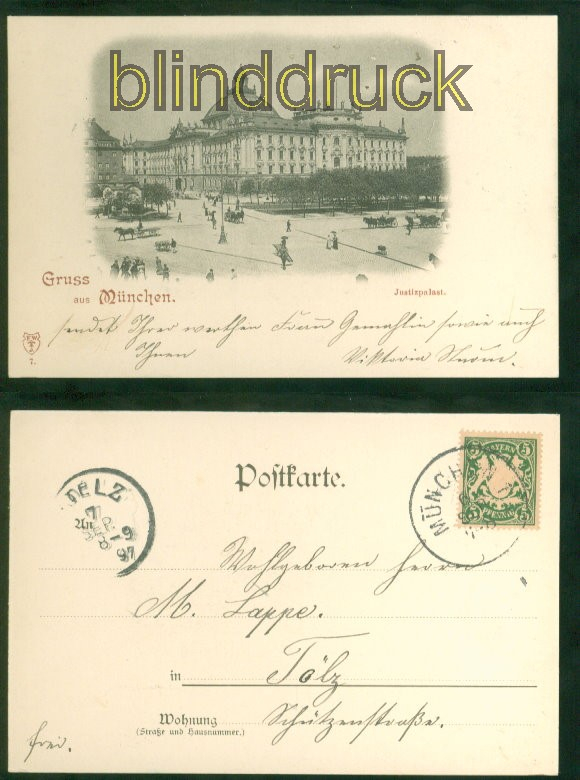 blinddruck
Gruss
aus München.
Justizpalast.
sendet Ihrer werthen Frau Gemahlin sowie auch
Ihnen Viktoria Sturm.
7.
Postkarte.
BAYERN
5 5
5 PFENNIG 5
MÜNCH
OELZ
An
Wohlgeboren Herrn
M. Lappe.
in Tölz
Wohnung Schützenstraße.
(Straße und Hausnummer.)
frei.